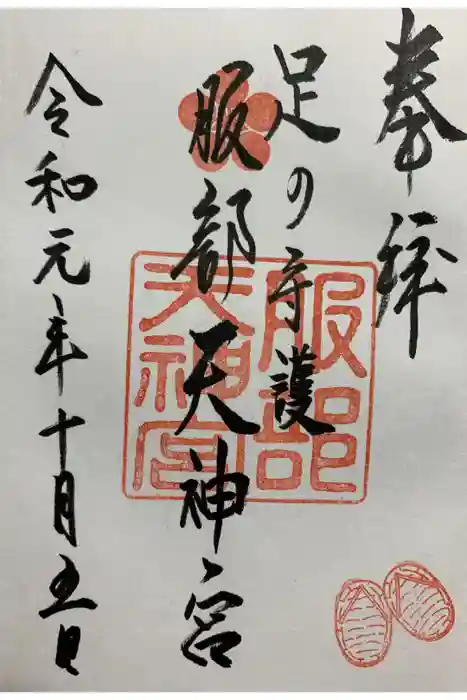 奉拝
足の守護
服部天神宮
令和元年十月五日
服部
天神宮